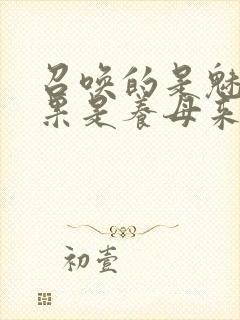 召唤的是魅
果是养母来
初壹